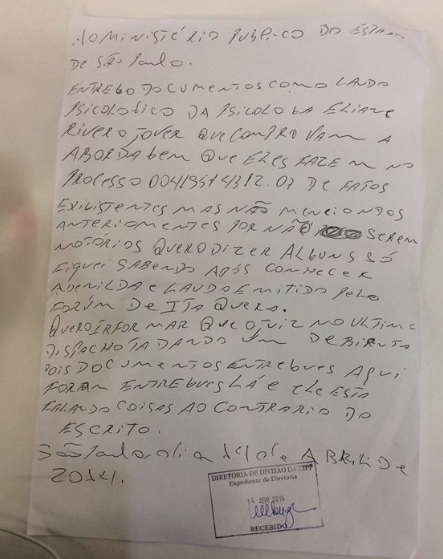 AO MINISTÉRIO PUBLICO DO ESTADO
DE SÃO PAULO.
ENTREGO DOCUMENTOS COMO LAUDO
PSICOLOGICO DA PSICOLOGA ELIANE
RIVERO JOVER QUE COMPROVAM A
ABORDAGEM QUE ELES FAZEM NO
PROCESSO DE FATOS
EXIXISTENTES MAS NÃO MENCIONDOS
ANTERIOMENTES POR NÃO SEREM
NOTÓRIOS QUERO DIZER ALGUNS SÓ
FIQUEI SABENDO APÓS CONHECER
ADENILDA E LAUDO EMITIDO PELO
FORÚM DE ITAQUERA.
QUERO INFORMAR QUE O JUIZ NO ULTIMO
DISPACHO TA DANDO UM DE BIRUTA
POIS DOCUMENTOS ENTREGUES AQUI
FORAM ENTREGUES LÁ E ELE ESTA
FALANDO COISAS AO CONTRARIO DO
ESCRITO.
SÃO PAULO, DIA 14 DE ABRIL DE
2014.
DIRETORIA DE DIVISÃO DA
Expediente da Diretoria
14 ABR 2014
RECEBIDO